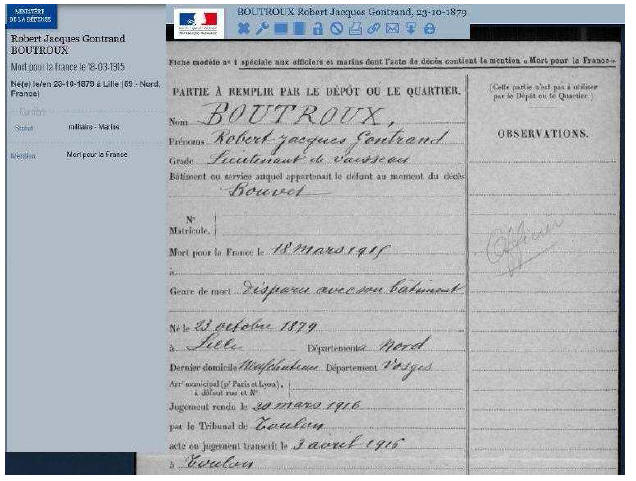 MINISTÈRE
DE LA DÉFENSE
Robert Jacques Gontrand
BOUTROUX
Mort pour la france le 18-03-1915
Né(e) le/en 23-10-1879 à Lille (59 - Nord,
France)
Carrière
Statut militaire - Marins
Mention Mort pour la France
BOUTROUX Robert Jacques Gontrand, 23-10-1879
Fiche modèle n° 1 spéciale aux officiers et marins dont l'acte de décès contient la mention « Mort pour la France »
PARTIE À REMPLIR PAR LE DÉPÔT OU LE QUARTIER.
Nom BOUTROUX,
Prénoms Robert Jacques Gontrand
Grade Lieutenant de vaisseau
Bâtiment ou service auquel appartenait le défunt au moment du décès
Bouvet
N°
Matricule.
Mort pour la France le 18 mars 1915
à
Genre de mort disparu avec son bâtiment
Né le 23 octobre 1879
à Lille Département Nord
Dernier domicile Neufchateau Département Vosges
Arrt municipal (pr Paris et Lyon),
à défaut rue et N°
Jugement rendu le 20 mars 1916
par le Tribunal de Toulon
acte ou jugement transcrit le 3 avril 1916
à Toulon
(Cette partie n'est pas à utiliser
par le Dépôt ou le Quartier.)
OBSERVATIONS.
Officier